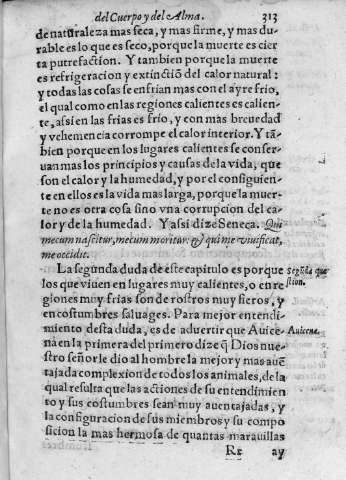 del Cuerpo y del Alma. 313
de naturaleza mas seca, y mas firme, y mas du-
rable es lo que es seco, porque la muerte es cier
ta putrefaction. Y tambien porque la muerte
es refrigeracion y extinctiõ del calor natural:
y todas las cosas se enfrian mas con el ayre frio,
el qual como en las regiones calientes es calien-
te, assi en las frias es frio, y con mas breuedad
y vehemencia corrompe el calor interior. Y tã-
bien porque en los lugares calientes se conser-
uan mas los principios y causas de la vida, que
son el calor y la humedad, y por el consiguien-
te en ellos es la vida mas larga, porque la muer-
te no es otra cosa sino vna corrupcion del ca-
lor y de la humedad. Y assi dize Seneca. Qui
mecum nascitur, mecum moritur: & qui me viuificat,
me occidit.
La segunda duda de este capitulo es porque
segũda que
stion.
los que viuen en lugares muy calientes, o en re
giones muy frias son de rostros muy fieros, y
en costumbres saluages. Para mejor entendi-
miento desta duda, es de aduertir que Auice-
Auicena.
na en la primera del primero dize q̃ Dios nue-
stro señor le dio al hombre la mejor y mas auẽ
tajada complexion de todos los animales, de la
qual resulta que las actiones de su entendimien
to y sus costumbres sean muy auentajadas, y
la configuracion de sus miembros y su compo
sicion la mas hermosa de quantas marauillas
Rr ay